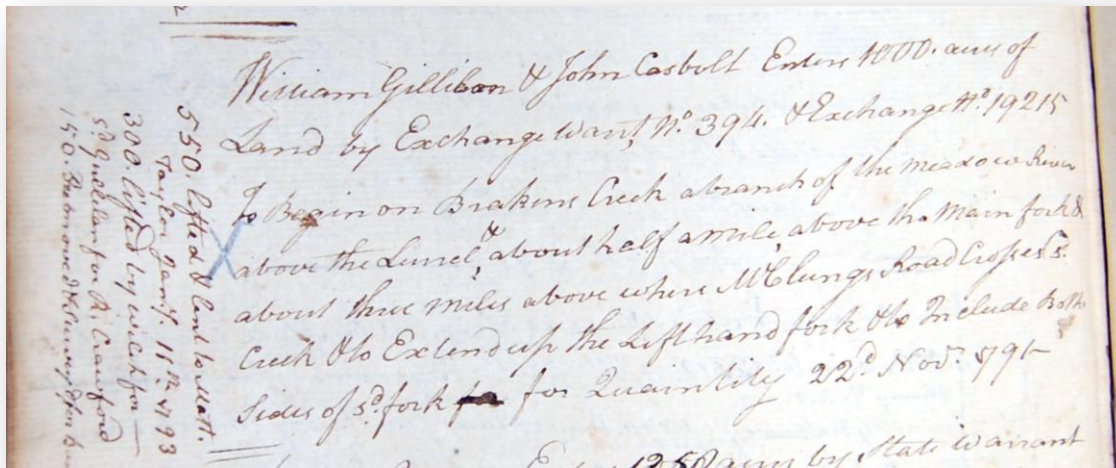 William Gillilan & John Casbolt Enters 1000. acres of
Land by Exchange Want, No. 394. & Exchange No. 19215
To Begin on Brakens Creek a branch of the meadow River
above the Lurrel, & about half a mile, above the Main fork &
about three miles above where McClungs Road Crosses sd.
Creek & to Extend up the Left hand fork & to Include Both
Sides of sd. fork for Quaintity 22d. Novr. 1791
Enters 1250 acres by State Warrant
550. lifted & land to Matt.
Taylor Jany. 15th 1793
300. lifted by witch for
sd Gullilan for R. Crawford
150. Removed & Survey'd for